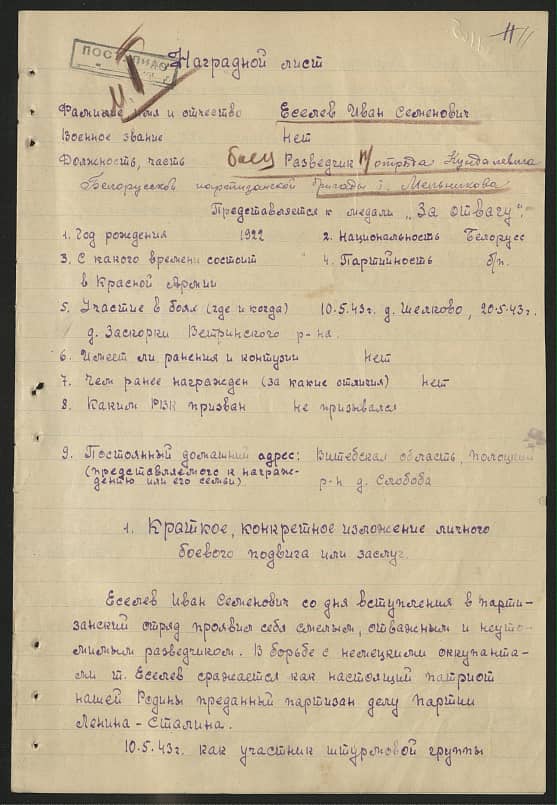 11
ПОСТУПИЛО
Наградной лист
Фамилие имя и отчество Еселев Иван Семенович
Военное звание Нет
Должность, часть боец Разведчик отряда Кундалевича
Белорусской партизанской бригады т. Мельникова
Представляется к медали „За отвагу".
1. Год рождения 1922 2. Национальность Белорусс
3. С какого времени состоит 4. Партийность б/п.
в Красной Армии
5. Участие в боях (где и когда) 10.5.43г. д. Шелково, 20.5.43г.
д. Заскорки Ветринского р-на.
6. Имеет ли ранения и контузии Нет
7. Чем ранее награжден (за какие отличия) Нет
8. Каким РВК призван не призывался
9. Постоянный домашний адрес: Витебская область, Полоцкий
(представляемого к награж- р-н д. Слобода
дению или его семьи)
1. Краткое, конкретное изложение личного
боевого подвига или заслуг.
Еселев Иван Семенович со дня вступления в парти-
занский отряд проявил себя смелым, отважным и неуто-
мимым разведчиком. В борьбе с немецкими оккупанта-
ми т. Еселев сражается как настоящий патриот
нашей Родины преданный партизан делу Партии
Ленина-Сталина.
10.5.43г. как участник штурмовой группы